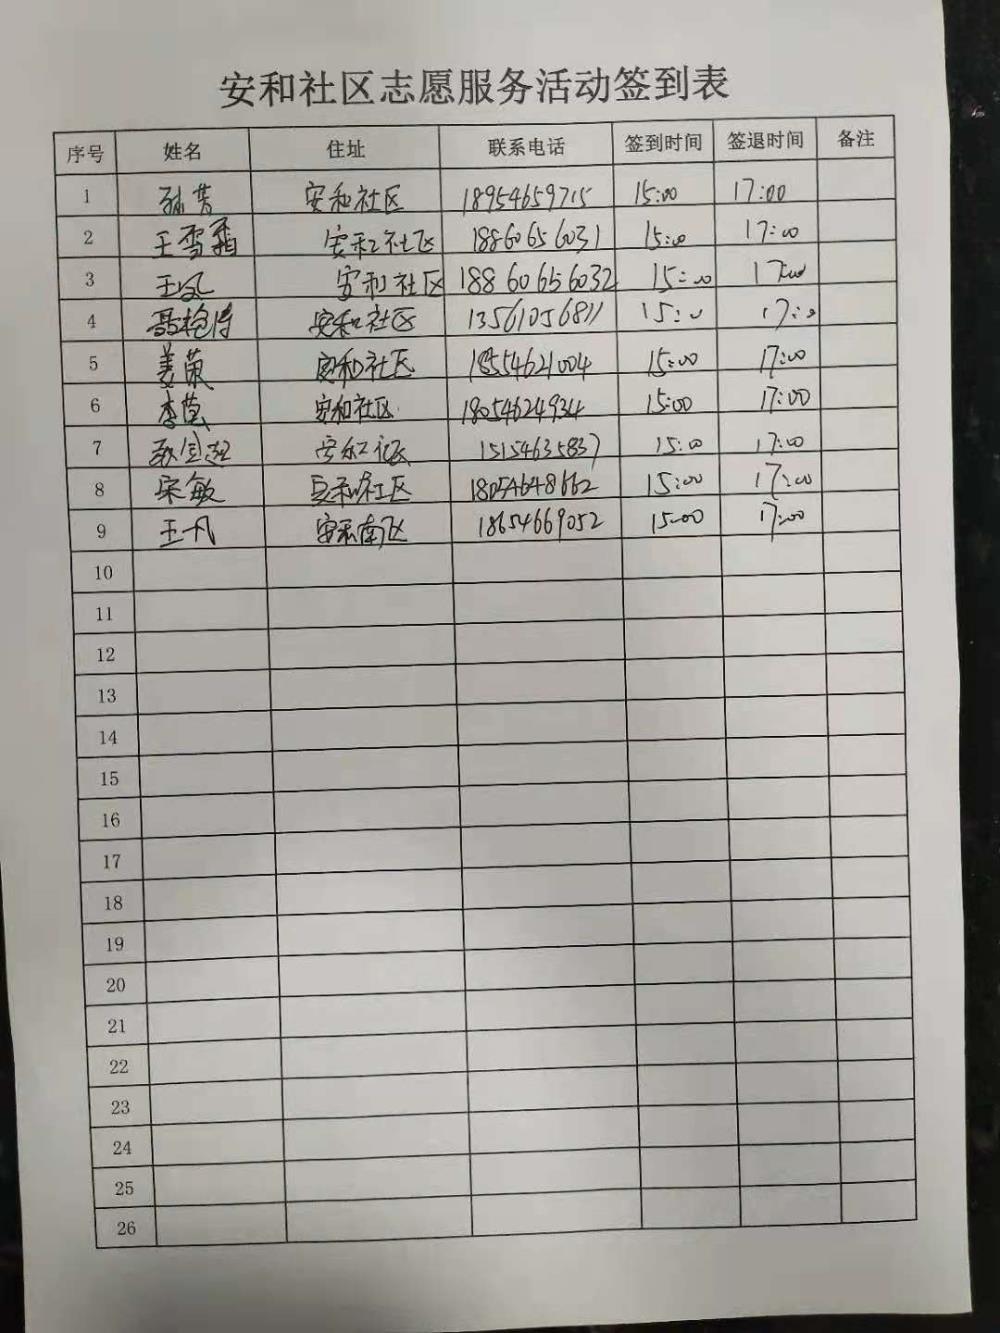 安和社区志愿服务活动签到表
序号 姓名 住址 联系电话 签到时间 签退时间 备注
1 孙芳 安和社区 18954659715 15:00 17:00
2 王雪霜 安和社区 18860656031 15:00 17:00
3 王凤 安和社区 18860656032 15:00 17:00
4 安和社区 13561056811 15:00 17:00
5 姜荣 安和社区 18554621004 15:00 17:00
6 李莹 安和社区 18054624934 15:00 17:00
7 安和社区 15154635837 15:00 17:00
8 宋敏 安和社区 18054648662 15:00 17:00
9 王凡 安和南区 18654669052 15:00 17:00
10
11
12
13
14
15
16
17
18
19
20
21
22
23
24
25
26